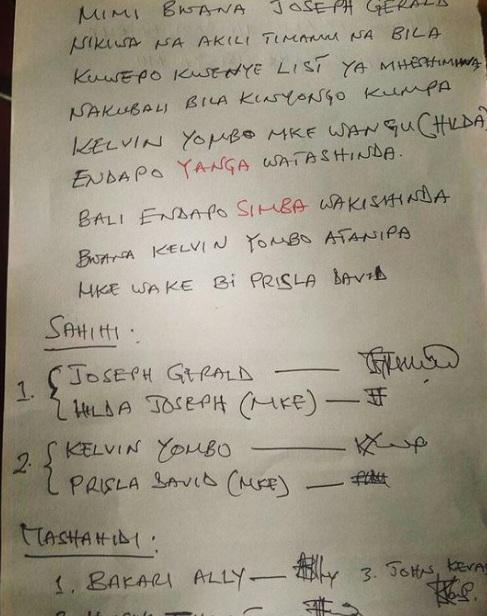 MIMI BWANA JOSEPH GERALD
NIKIWA NA AKILI TIMAMU NA BILA
KUWEPO KWENYE LIST YA MHESHIMIWA
NAKUBALI BILA KINYONGO KUMPA
KELVIN YOMBO MKE WANGU (HILDA)
ENDAPO YANGA WATASHINDA.
BALI ENDAPO SIMBA WAKISHINDA
BWANA KELVIN YOMBO ATANIPA
MKE WAKE Bi PRISLA DAVID
SAHIHI:
1. { JOSEPH GERALD —
HILDA JOSEPH (MKE) —
2. { KELVIN YOMBO —
PRISLA DAVID (MKE) —
MASHAHIDI:
1. BAKARI ALLY — 3. JOHN,